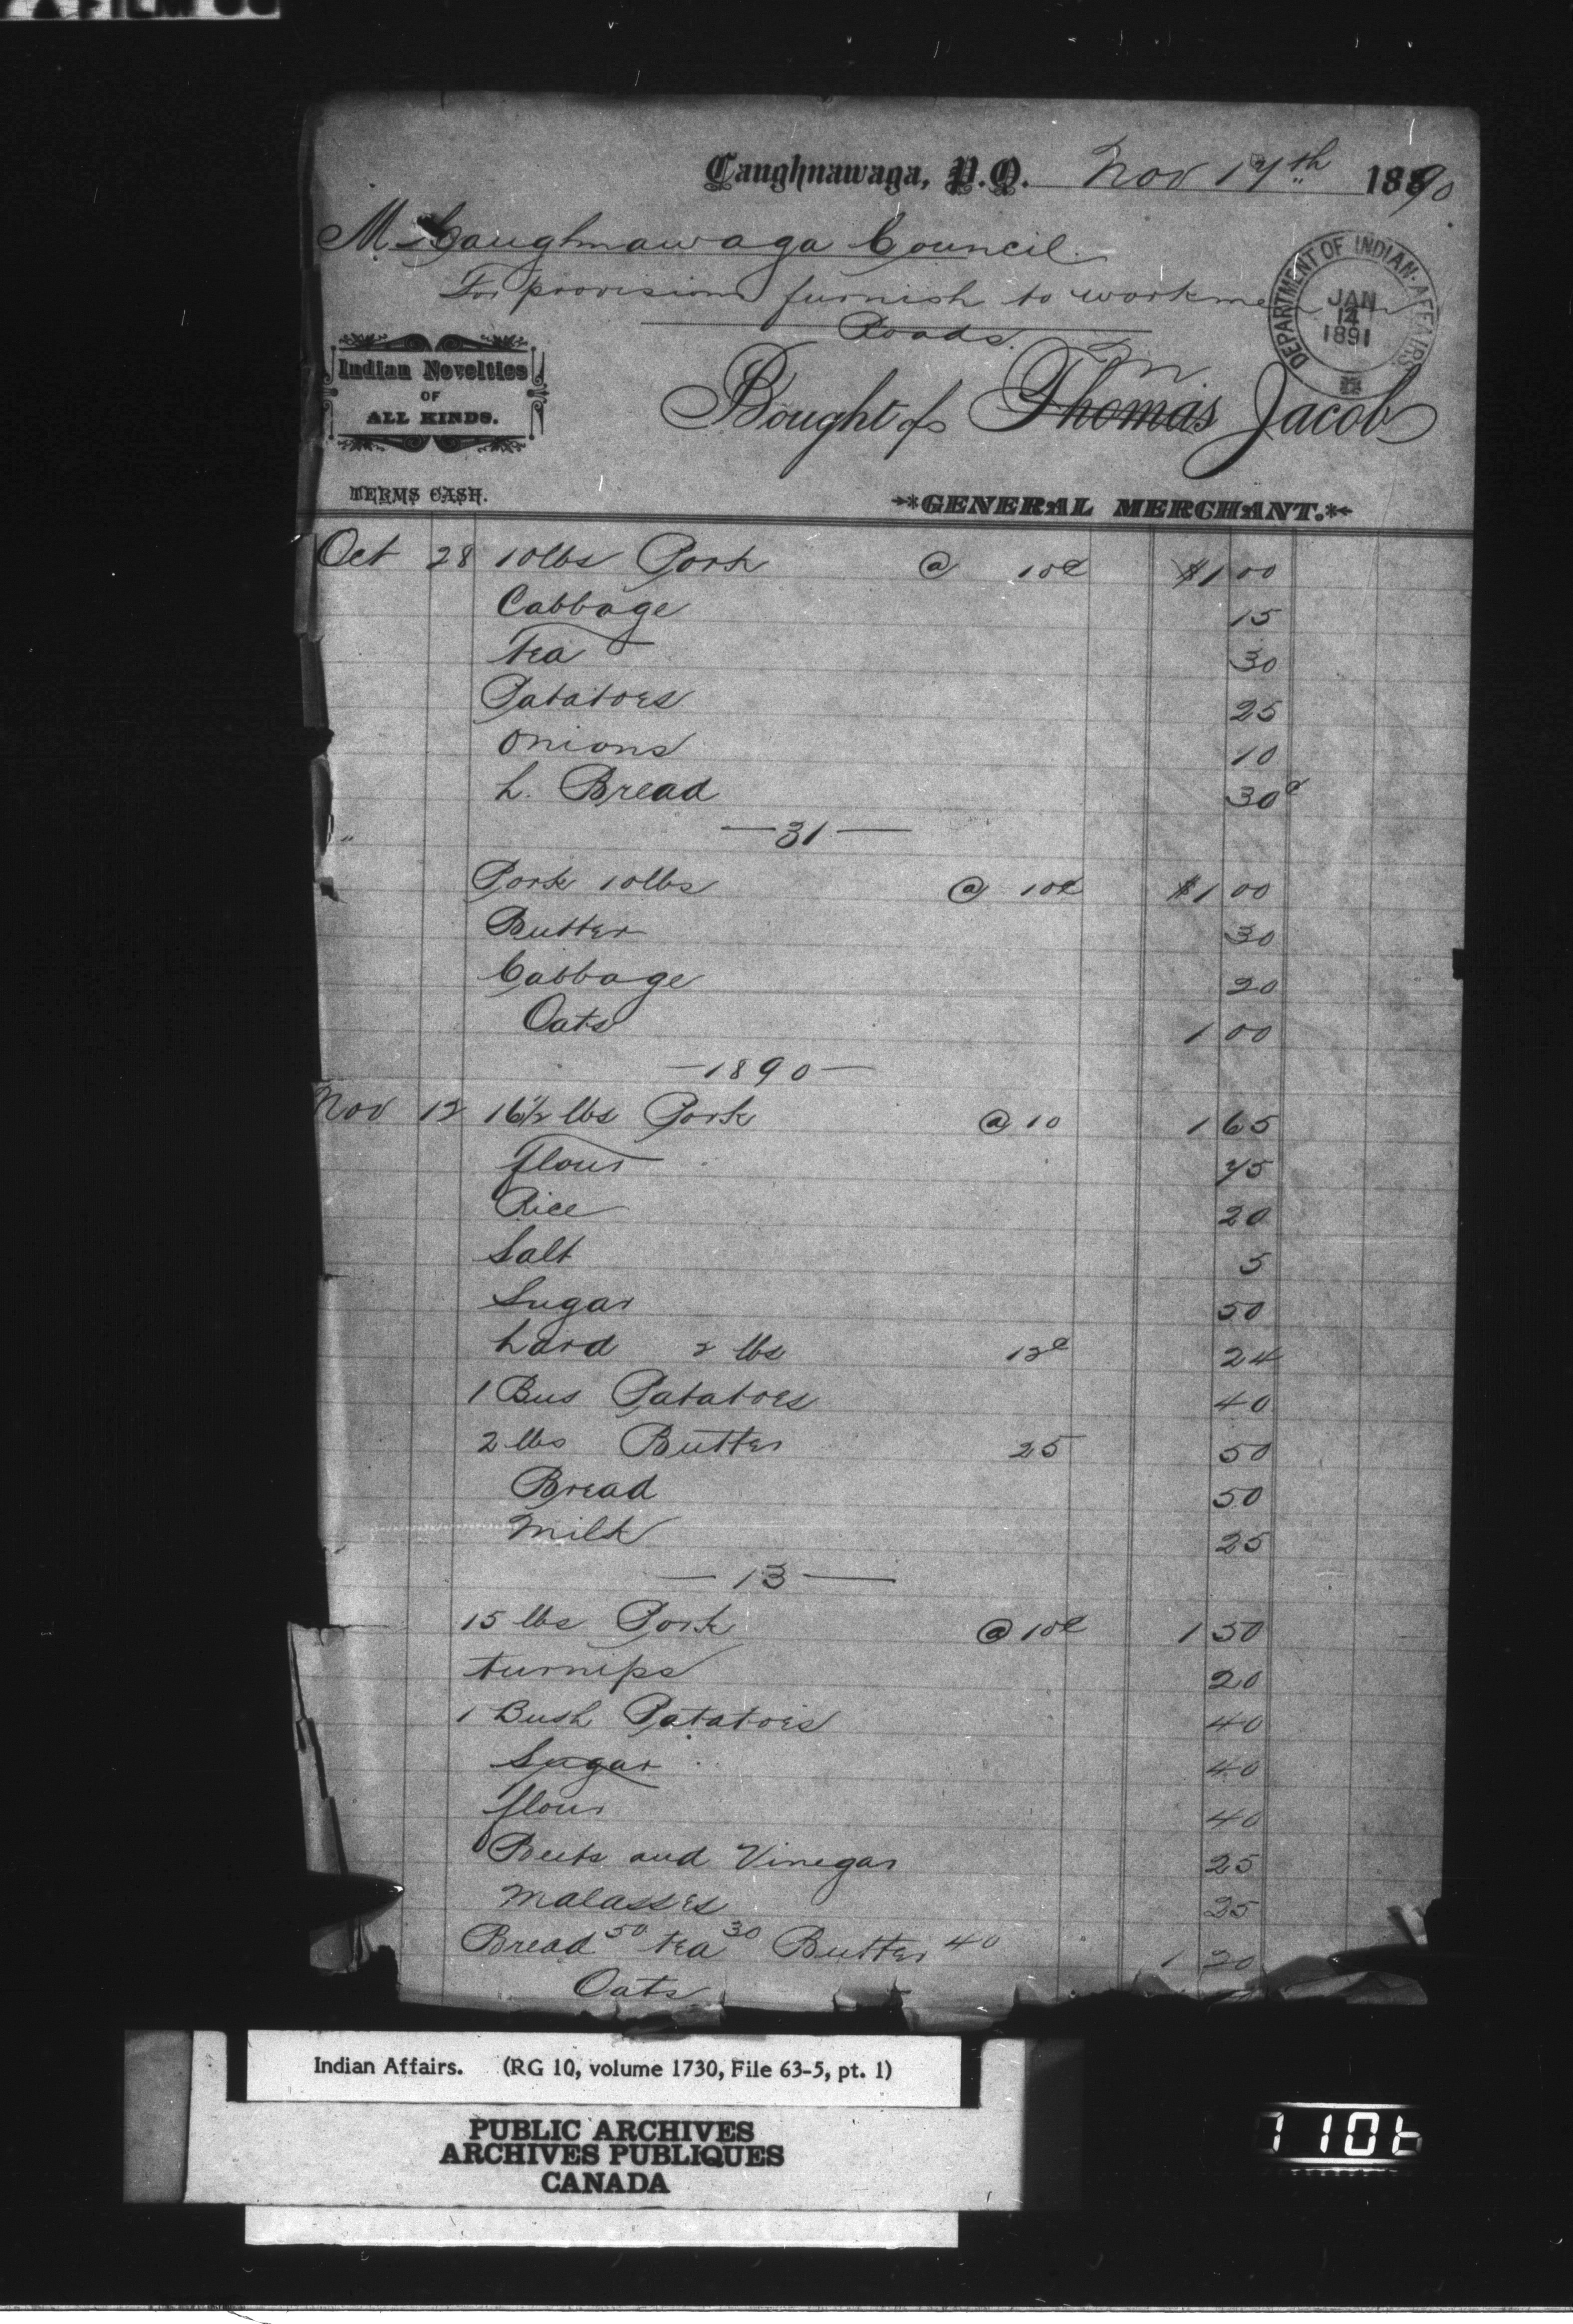 Caughnawaga, P.Q. Nov 17th 1890
M Caughnawaga Council
For provisions furnish to workmen
Roads.
DEPARTMENT OF INDIAN AFFAIRS
JAN
14
1891
Indian Novelties
OF
ALL KINDS.
Bought of Thomas Jacob
TERMS CASH.
GENERAL MERCHANT.
Oct 28 10lbs Pork @ 10¢ $1 00
Cabbage 15
Tea 30
Patatoes 25
Onions 10
L. Bread 30¢
" — 31 —
Pork 10lbs @ 10¢ $1 00
Butter 30
Cabbage 20
Oats 1 00
— 1890 —
Nov 12 16½ lbs Pork @ 10 1 65
flour 75
Rice 20
Salt 5
Sugar 50
Lard 2 lbs 12¢ 24
1 Bus Patatoes 40
2 lbs Butter 25 50
Bread 50
Milk 25
— 13 —
15 lbs Pork @ 10¢ 1 50
turnips 20
1 Bush Patatoes 40
Sugar 40
flour 40
Beets and Vinegar 25
Malasses 25
Bread 50 tea 30 Butter 40 1 20
Oats
Indian Affairs. (RG 10, volume 1730, File 63-5, pt. 1)
PUBLIC ARCHIVES
ARCHIVES PUBLIQUES
CANADA